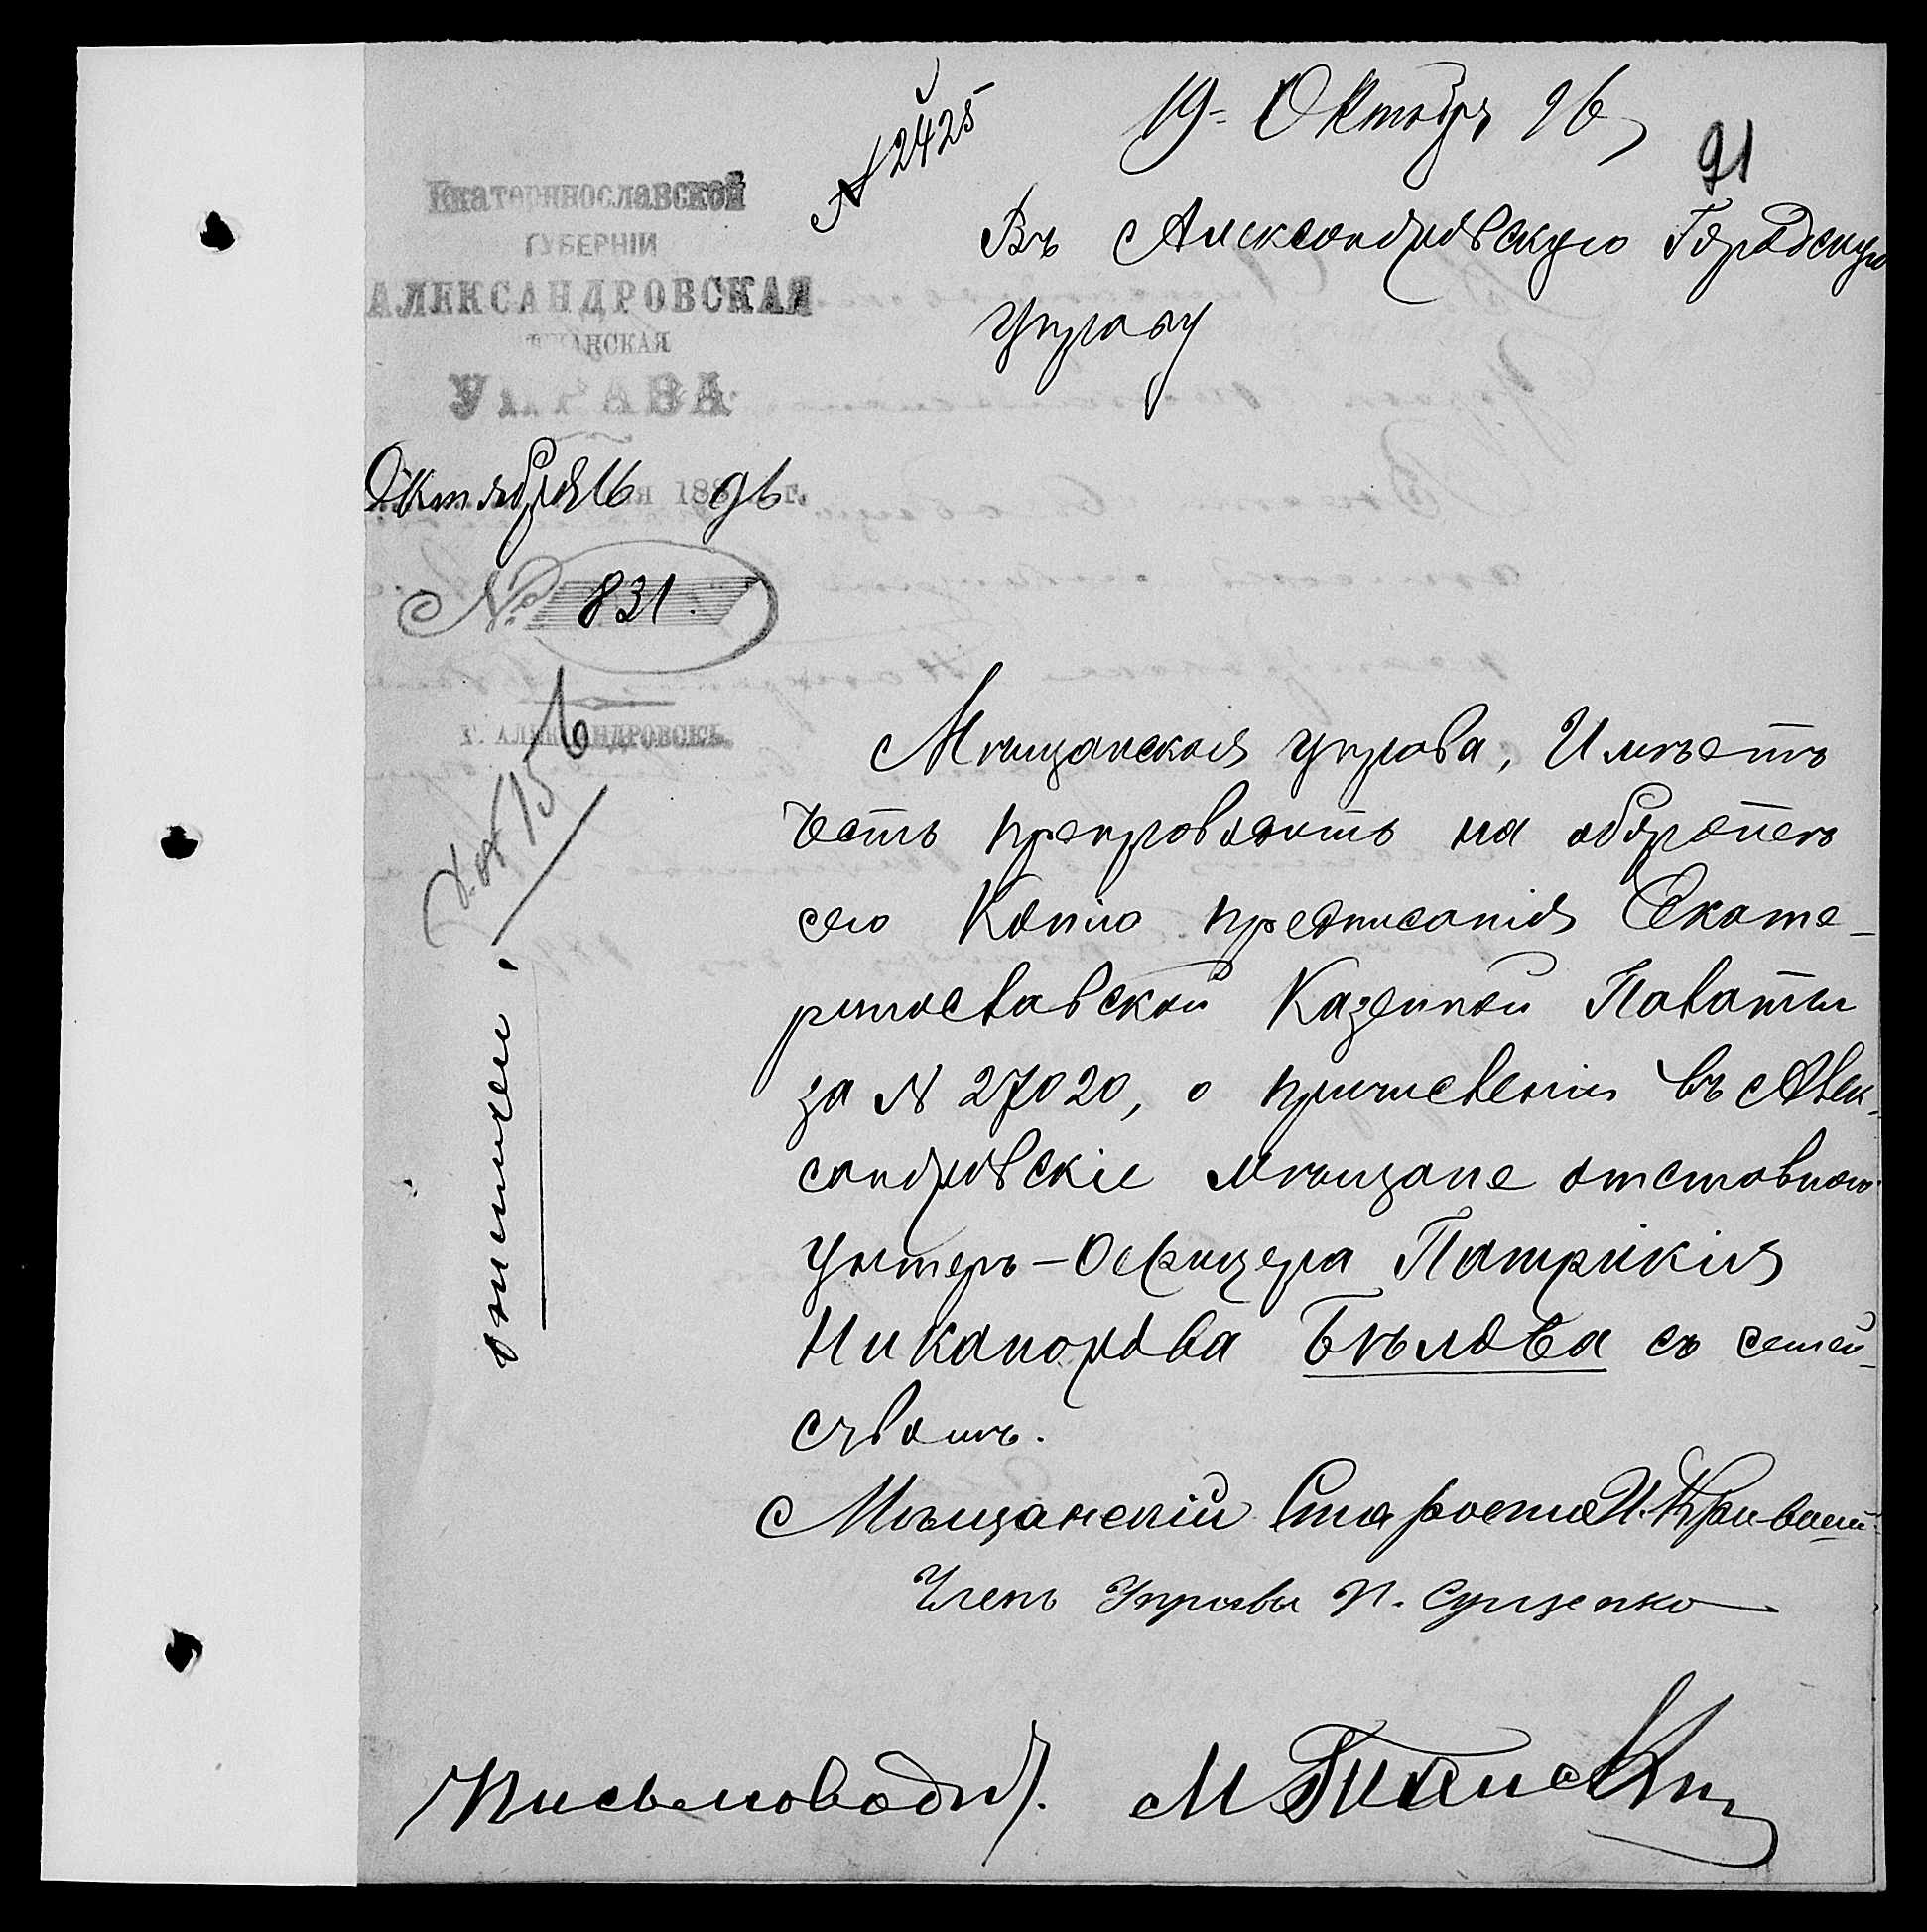 № 2425
19 Октября 96
91
Въ Александровскую Городскую
Управу
Екатеринославской
ГУБЕРНІИ
АЛЕКСАНДРОВСКАЯ
МѢЩАНСКАЯ
УПРАВА
Октября 16 дня 1896 г.
№ 831.
г. АЛЕКСАНДРОВСКЪ.
Мѣщанская управа, Имѣетъ
честь препроводить на оборотѣ
сего Копію предписанія Екате-
ринославской Казенной Палаты
за № 27020, о причисленіи въ Алек-
сандровскіе мѣщане отставного
Унтеръ-Офицера Патрикія
Никанорова Бѣлова съ семей-
ствомъ.
Мѣщанскій Староста И.
Членъ Управы И. Сущенко
Письмовод.